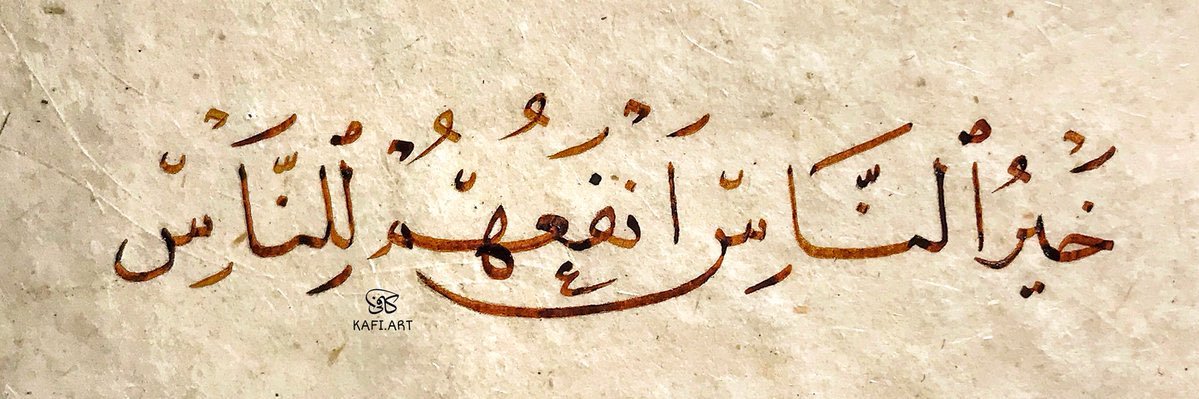 خَيْرُ ٱلنَّاسِ أَنْفَعُهُمْ لِلنَّاسِ
كافي
KAFI.ART